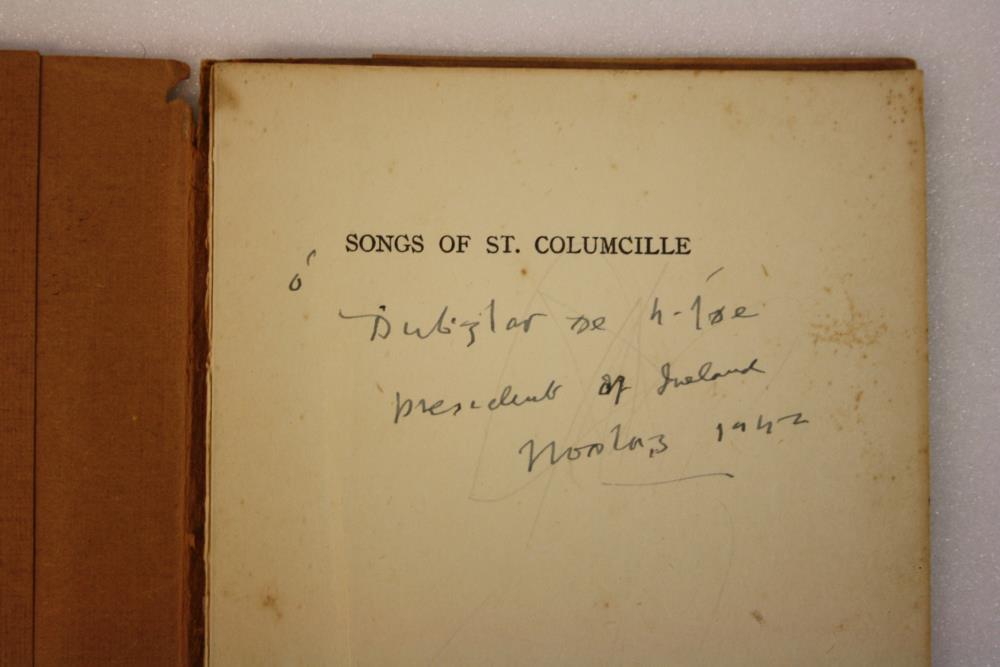 SONGS OF ST. COLUMCILLE
ó
Dubiġlas de h-Íde
President of Ireland
Nodlag 1942